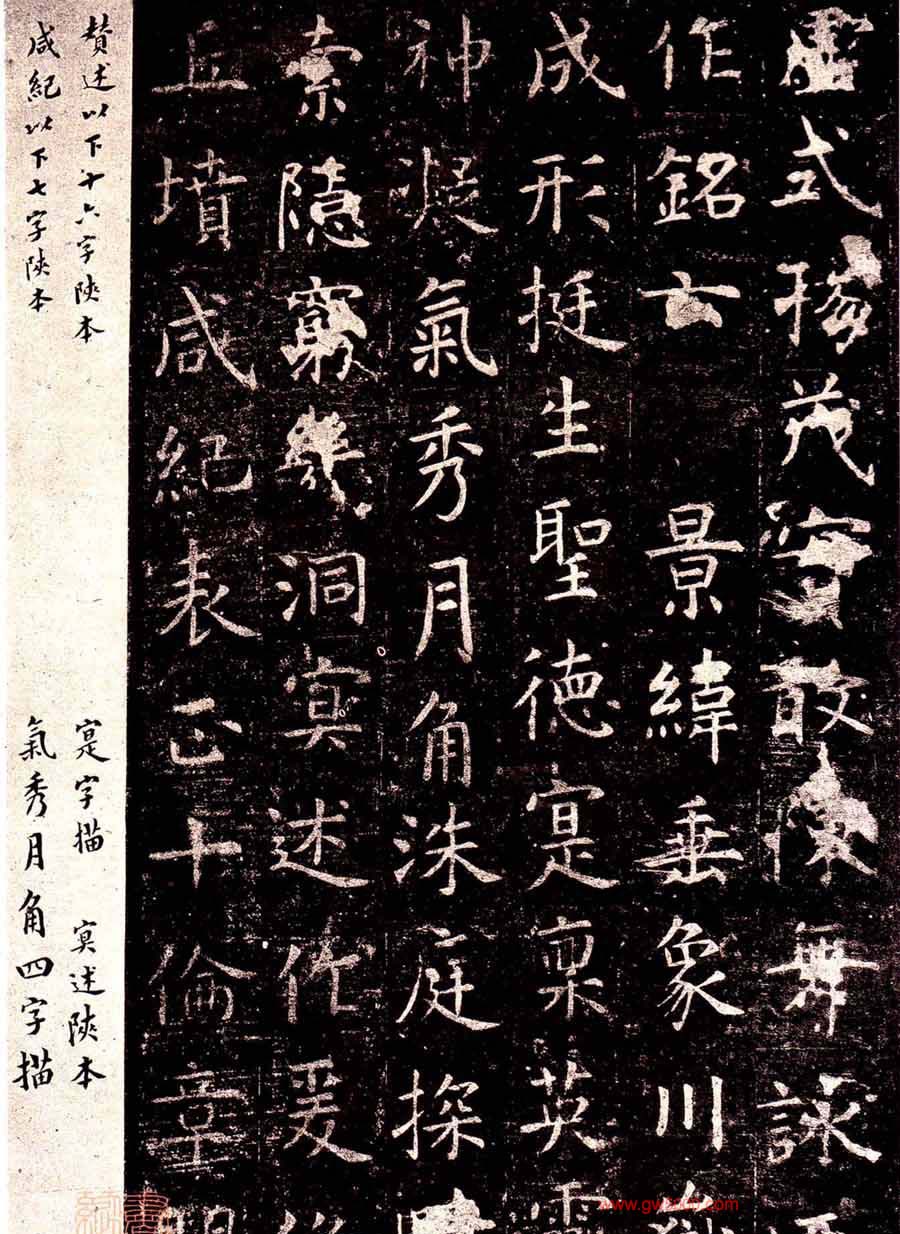 虛式揚茂實敢陳舞詠
作銘云 景緯垂象川
成形挺生聖德寔稟英靈
神凝氣秀月角洙庭探
索隱窮幾洞冥述作爰
丘墳咸紀表正十倫章
贊述以下十六字陝本
咸紀以下七字陝本
寔字描 冥述陝本
氣秀月角四字描